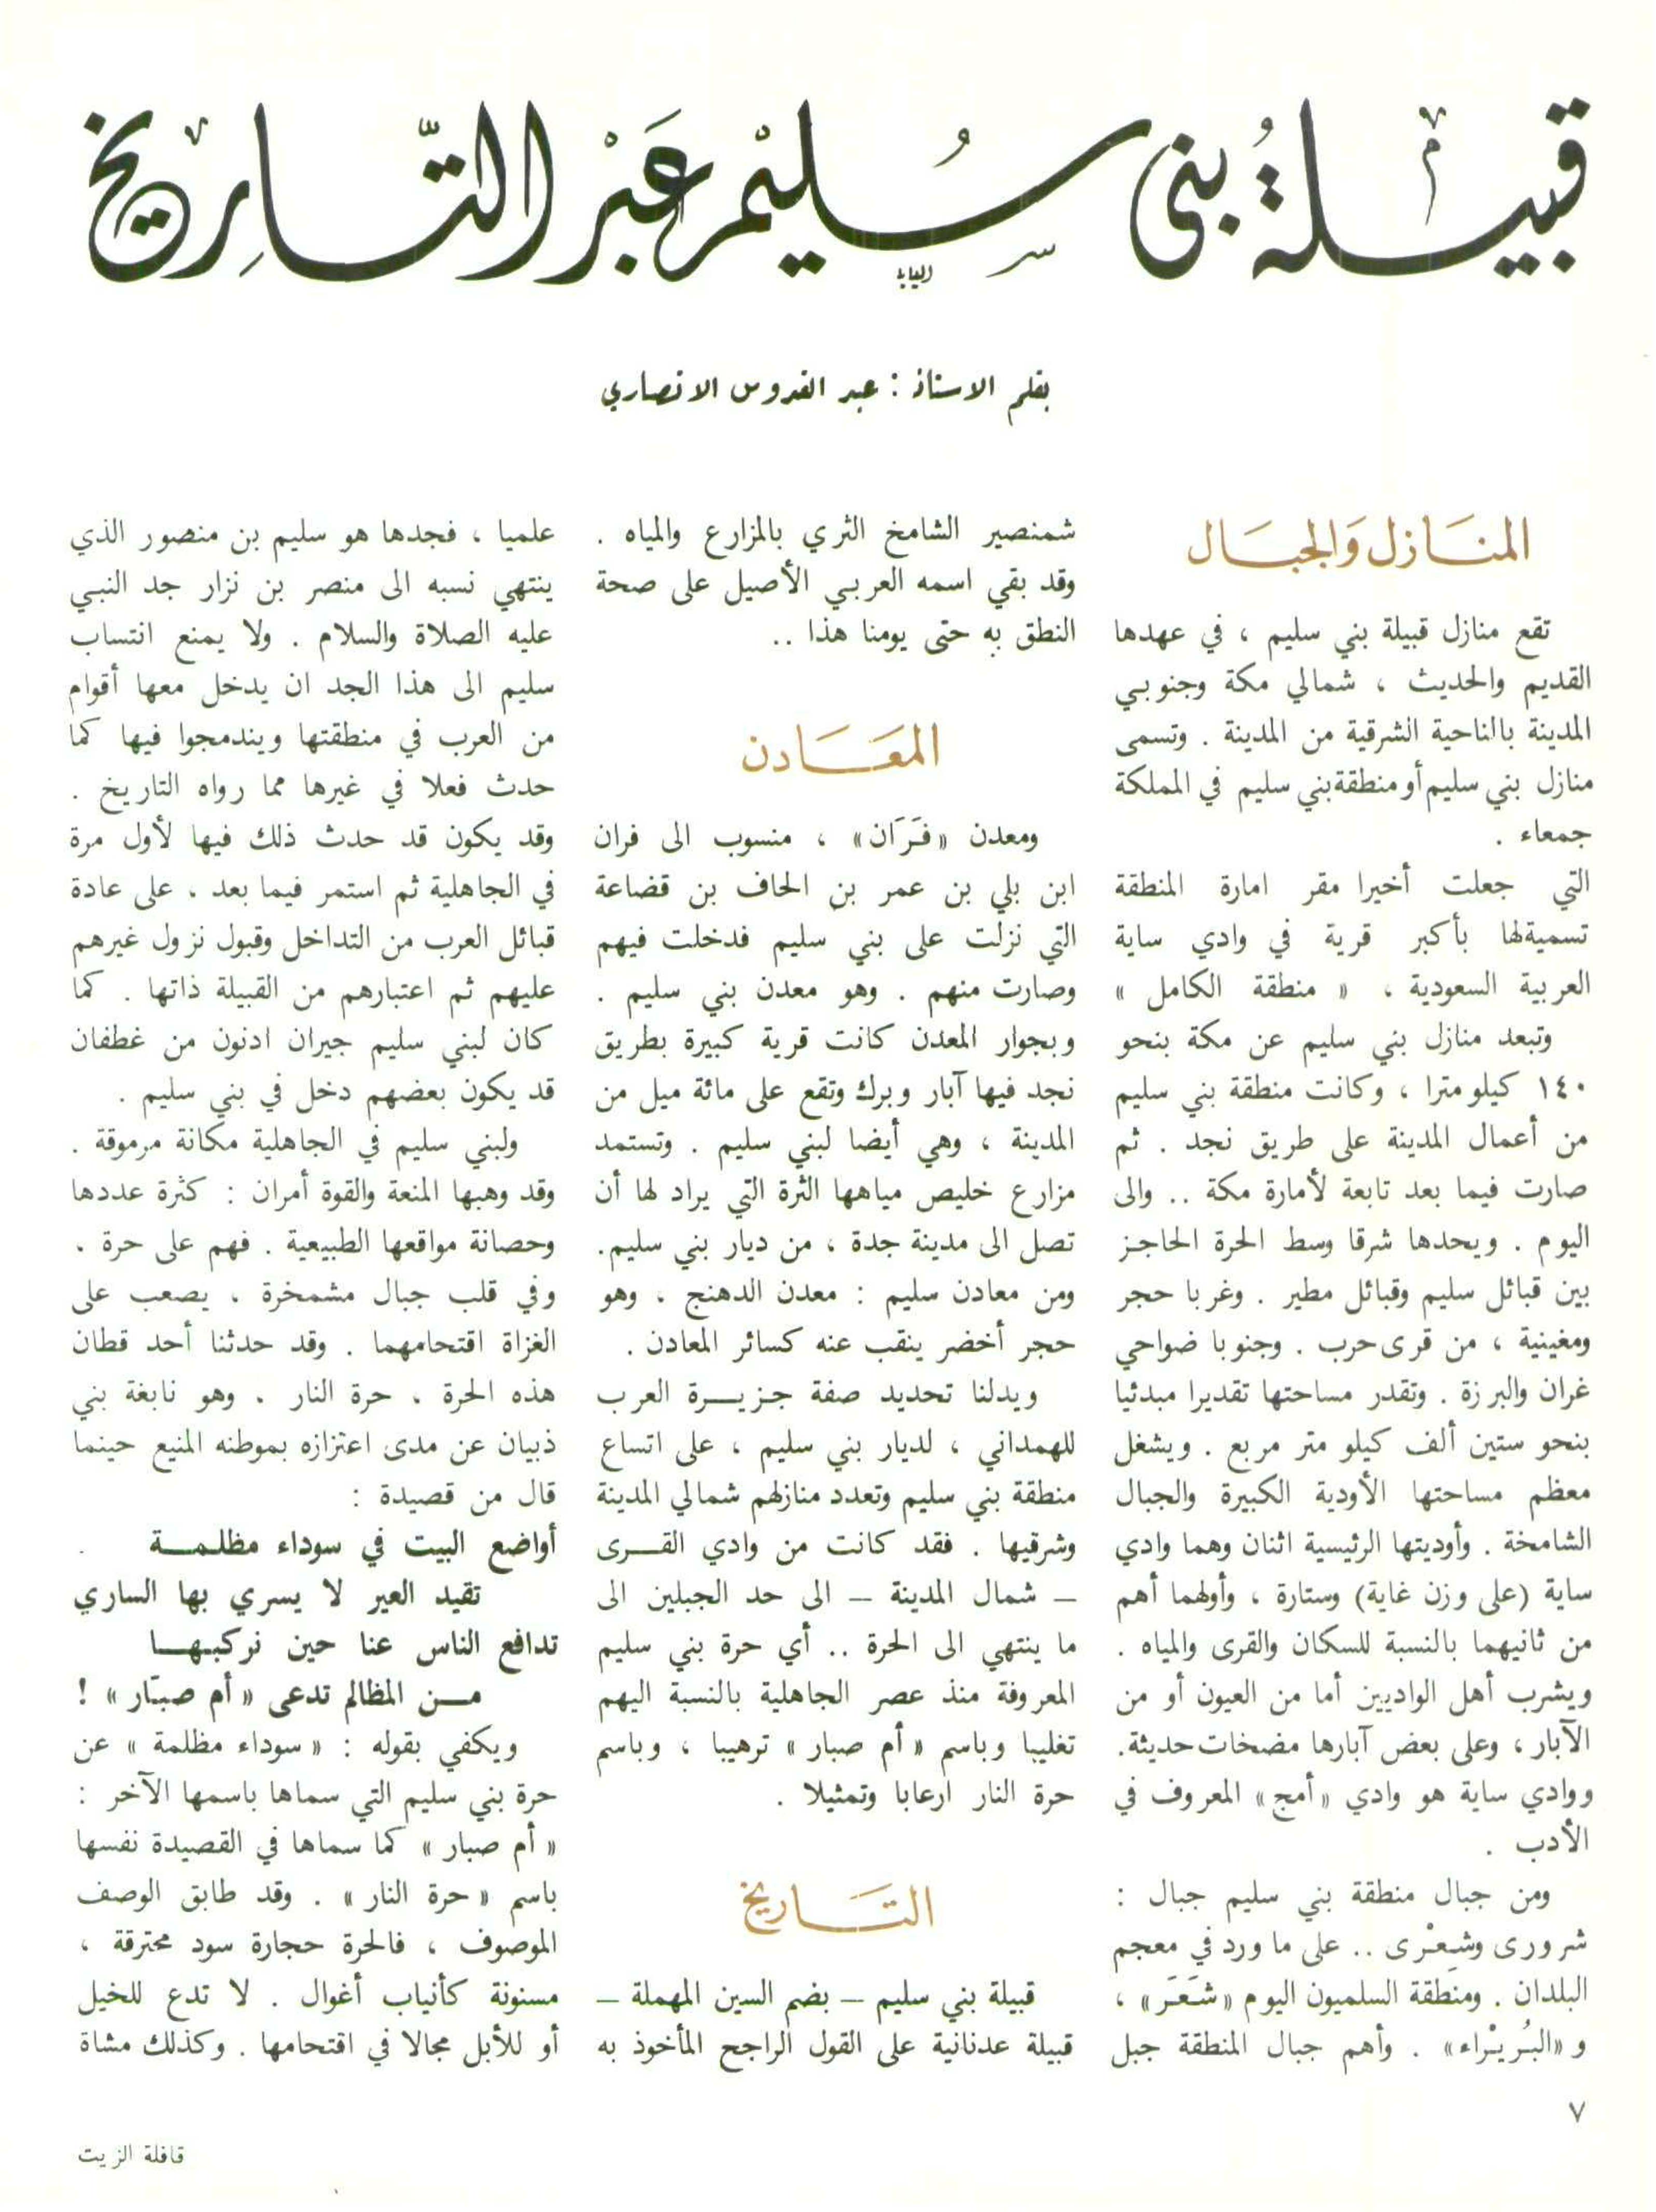 قبيلةُ بني سُليْم عَبْر التّاريخ
بقلم الاستاذ : عبد القدوس الانصاري
المنَازل وَالجبَال
تقع منازل قبيلة بني سليم ، في عهدها
القديم والحديث ، شمالي مكة وجنوبي
المدينة بالناحية الشرقية من المدينة . وتسمى
منازل بني سليم أو منطقة بني سليم في المملكة
جمعاء .
التي جعلت أخيرا مقر امارة المنطقة
تسمية لها بأكبر قرية في وادي ساية
العربية السعودية ، « منطقة الكامل »
وتبعد منازل بني سليم عن مكة بنحو
١٤٠ كيلو مترا ، وكانت منطقة بني سليم
من أعمال المدينة على طريق نجد . ثم
صارت فيما بعد تابعة لأمارة مكة .. والى
اليوم . ويحدها شرقا وسط الحرة الحاجز
بين قبائل سليم وقبائل مطير . وغربا حجر
ومغينية ، من قرى حرب . وجنوبا ضواحي
غران والبرزة . وتقدر مساحتها تقديرا مبدئيا
بنحو ستين ألف كيلو متر مربع . ويشغل
معظم مساحتها الأودية الكبيرة والجبال
الشامخة . وأوديتها الرئيسية اثنان وهما وادي
ساية (على وزن غاية) وستارة ، وأولهما أهم
من ثانيهما بالنسبة للسكان والقرى والمياه .
ويشرب أهل الواديين أما من العيون أو من
الآبار ، وعلى بعض آبارها مضخات حديثة.
ووادي ساية هو وادي «أمج» المعروف في
الأدب .
ومن جبال منطقة بني سليم جبال :
شرورى وشِعْرى .. على ما ورد في معجم
البلدان . ومنطقة السلميون اليوم «شَعَر» ،
و «البُريْراء» . وأهم جبال المنطقة جبل
شمنصير الشامخ الثري بالمزارع والمياه .
وقد بقي اسمه العربي الأصيل على صحة
النطق به حتى يومنا هذا ..
المعَادن
ومعدن «فَرَان» ، منسوب الى فران
ابن بلي بن عمر بن الحاف بن قضاعة
التي نزلت على بني سليم فدخلت فيهم
وصارت منهم . وهو معدن بني سليم .
وبجوار المعدن كانت قرية كبيرة بطريق
نجد فيها آبار وبرك وتقع على مائة ميل من
المدينة ، وهي أيضا لبني سليم . وتستمد
مزارع خليص مياهها الثرة التي يراد لها أن
تصل الى مدينة جدة ، من ديار بني سليم.
ومن معادن سليم : معدن الدهنج ، وهو
حجر أخضر ينقب عنه كسائر المعادن .
ويدلنا تحديد صفة جزيرة العرب
للهمداني ، لديار بني سليم ، على اتساع
منطقة بني سليم وتعدد منازلهم شمالي المدينة
وشرقيها . فقد كانت من وادي القرى
– شمال المدينة – الى حد الجبلين الى
ما ينتهي الى الحرة .. أي حرة بني سليم
المعروفة منذ عصر الجاهلية بالنسبة اليهم
تغليبا وباسم « أم صبار » ترهيبا ، وباسم
حرة النار ارعابا وتمثيلا .
التَاريخ
قبيلة بني سليم – بضم السين المهملة –
قبيلة عدنانية على القول الراجح المأخوذ به
علميا ، فجدها هو سليم بن منصور الذي
ينتهي نسبه الى منصر بن نزار جد النبي
عليه الصلاة والسلام . ولا يمنع انتساب
سليم الى هذا الجد ان يدخل معها أقوام
من العرب في منطقتها ويندمجوا فيها كما
حدث فعلا في غيرها مما رواه التاريخ .
وقد يكون قد حدث ذلك فيها لأول مرة
في الجاهلية ثم استمر فيما بعد ، على عادة
قبائل العرب من التداخل وقبول نزول غيرهم
عليهم ثم اعتبارهم من القبيلة ذاتها . كما
كان لبني سليم جيران ادنون من غطفان
قد يكون بعضهم دخل في بني سليم .
ولبني سليم في الجاهلية مكانة مرموقة .
وقد وهبها المنعة والقوة أمران : كثرة عددها
وحصانة مواقعها الطبيعية . فهم على حرة ،
وفي قلب جبال مشمخرة ، يصعب على
الغزاة اقتحامهما . وقد حدثنا أحد قطان
هذه الحرة ، حرة النار ، وهو نابغة بني
ذبيان عن مدى اعتزازه بموطنه المنيع حينما
قال من قصيدة :
أواضع البيت في سوداء مظلمة
تقيد العير لا يسري بها الساري
تدافع الناس عنا حين نركبها
من المظالم تدعى « أم صبّار » !
ويكفي بقوله : « سوداء مظلمة » عن
حرة بني سليم التي سماها باسمها الآخر :
« أم صبار » كما سماها في القصيدة نفسها
باسم « حرة النار » . وقد طابق الوصف
الموصوف ، فالحرة حجارة سود محترقة ،
مسنونة كأنياب أغوال . لا تدع للخيل
أو للأبل مجالا في اقتحامها . وكذلك مشاة
٧
قافلة الزيت